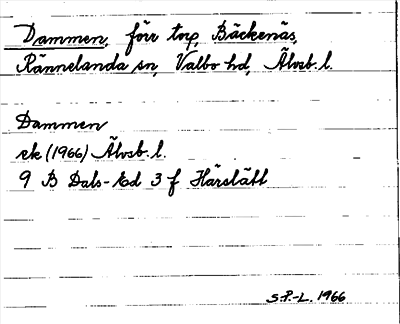 Dammen, förr tnp, Bäckenäs,
Rännelanda sn, Valbo hd, Älvsb. l.
Dammen
ek (1966) Älvsb. l.
9 B Dals-Ed 3 f Härslätt
S.P.-L. 1966